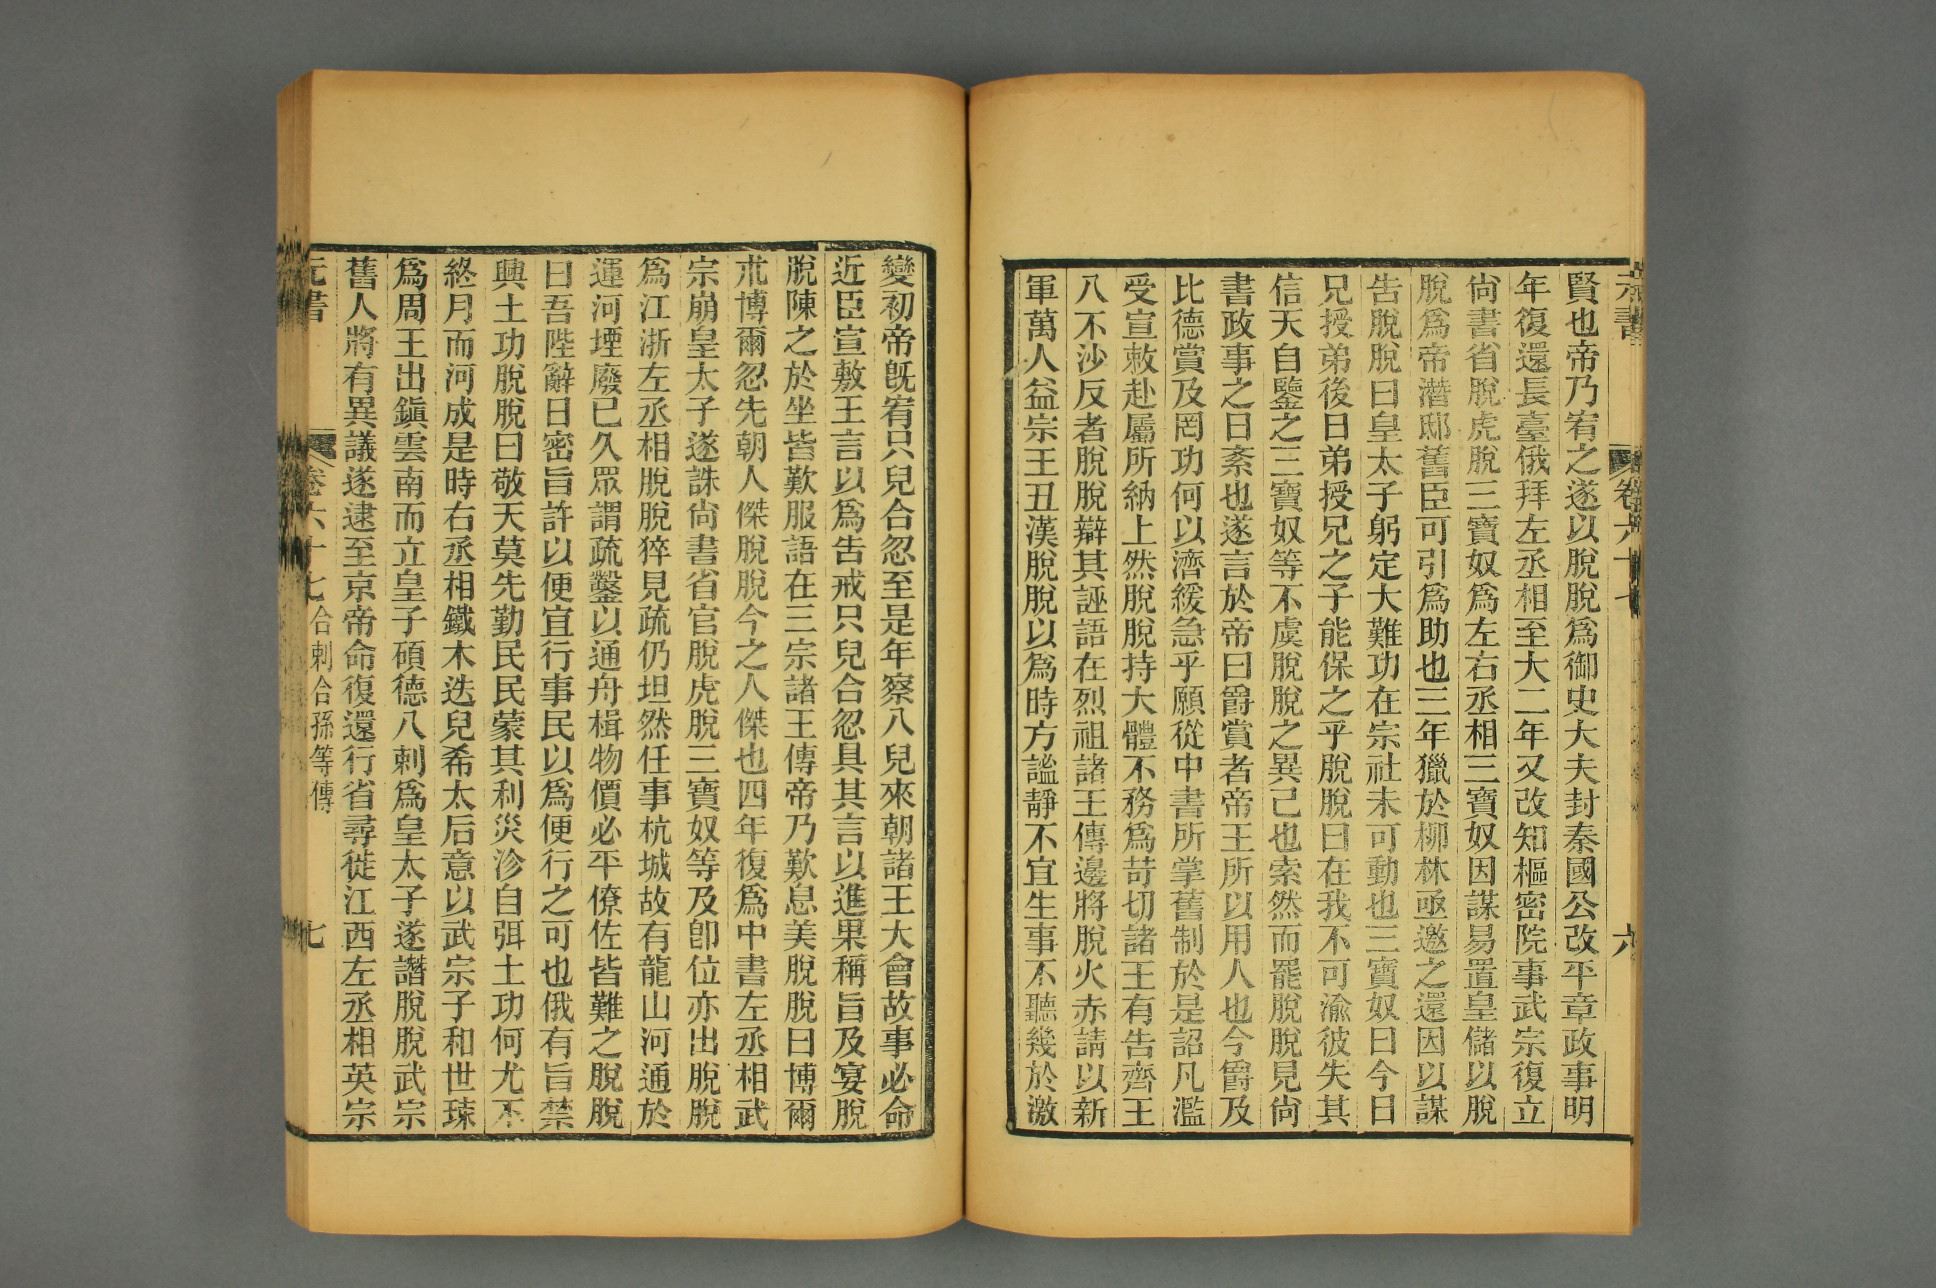 元書
卷六十七
六
賢也帝乃宥之遂以脫脫爲御史大夫封秦國公改平章政事明
年復還長臺俄拜左丞相至大二年又改知樞密院事武宗復立
尙書省脫虎脫三寶奴爲左右丞相三寶奴因謀易置皇儲以脫
脫爲帝潛邸舊臣可引爲助也三年獵於柳林亟邀之還因以謀
告脫脫曰皇太子躬定大難功在宗社未可動也三寶奴曰今日
兄授弟後日弟授兄之子能保之乎脫脫曰在我不可渝彼失其
信天自鑒之三寶奴等不虞脫脫之異己也索然而罷脫脫見尙
書政事之日紊也遂言於帝曰爵賞者帝王所以用人也今爵及
比德賞及罔功何以濟緩急乎願從中書所掌舊制於是詔凡濫
受宣敕赴屬所納上然脫脫持大體不務爲苛切諸王有告齊王
八不沙反者脫脫辯其誣語在烈祖諸王傳邊將脫火赤請以新
軍萬人益宗王丑漢脫脫以爲時方謐靜不宜生事不聽幾於激
變初帝旣宥只兒合忽至是年察八兒來朝諸王大會故事必命
近臣宣敷王言以爲告戒只兒合忽具其言以進果稱旨及宴脫
脫陳之於坐皆歎服語在三宗諸王傳帝乃歎息美脫脫曰博爾
朮博爾忽先朝人傑脫脫今之人傑也四年復爲中書左丞相武
宗崩皇太子遂誅尙書省官脫虎脫三寶奴等及卽位亦出脫脫
爲江浙左丞相脫脫猝見疏仍坦然任事杭城故有龍山河通於
運河堙廢已久眾謂疏鑿以通舟楫物價必平僚佐皆難之脫脫
曰吾陛辭日密旨許以便宜行事民以爲便行之可也俄有旨禁
興土功脫脫曰敬天莫先勤民民蒙其利災沴自弭土功何尤不
終月而河成是時右丞相鐵木迭兒希太后意以武宗子和世㻋
爲周王出鎭雲南而立皇子碩德八剌爲皇太子遂譖脫脫武宗
舊人將有異議遂逮至京帝命復還行省尋徙江西左丞相英宗
元書
卷六十七 合剌合孫等傳
七